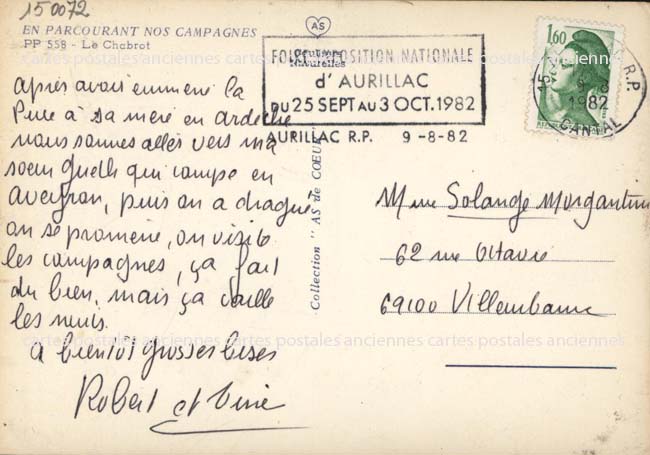 150072
EN PARCOURANT NOS CAMPAGNES
PP 558 - Le Chabrot
AS
FOIRE EXPOSITION NATIONALE
d'AURILLAC
DU 25 SEPT AU 3 OCT. 1982
AURILLAC R.P. 9-8-82
1,60
15 R.P.
9-8
1982
CANTAL
après avoir emmené la
Puce à sa mère en ardèche
nous sommes allés vers ma
soeur qui campe en
aveyron, puis on a
on se promène, on visite
les campagnes, ça fait
du bien, mais ça caille
les nuits.
a bientôt Grosses bises
Robert et
Collection "AS de COEUR"
Mme Solange Morgantini
62 rue Octavie
69100 Villeurbanne
cartes postales anciennes cartes postales anciennes cartes postales anciennes